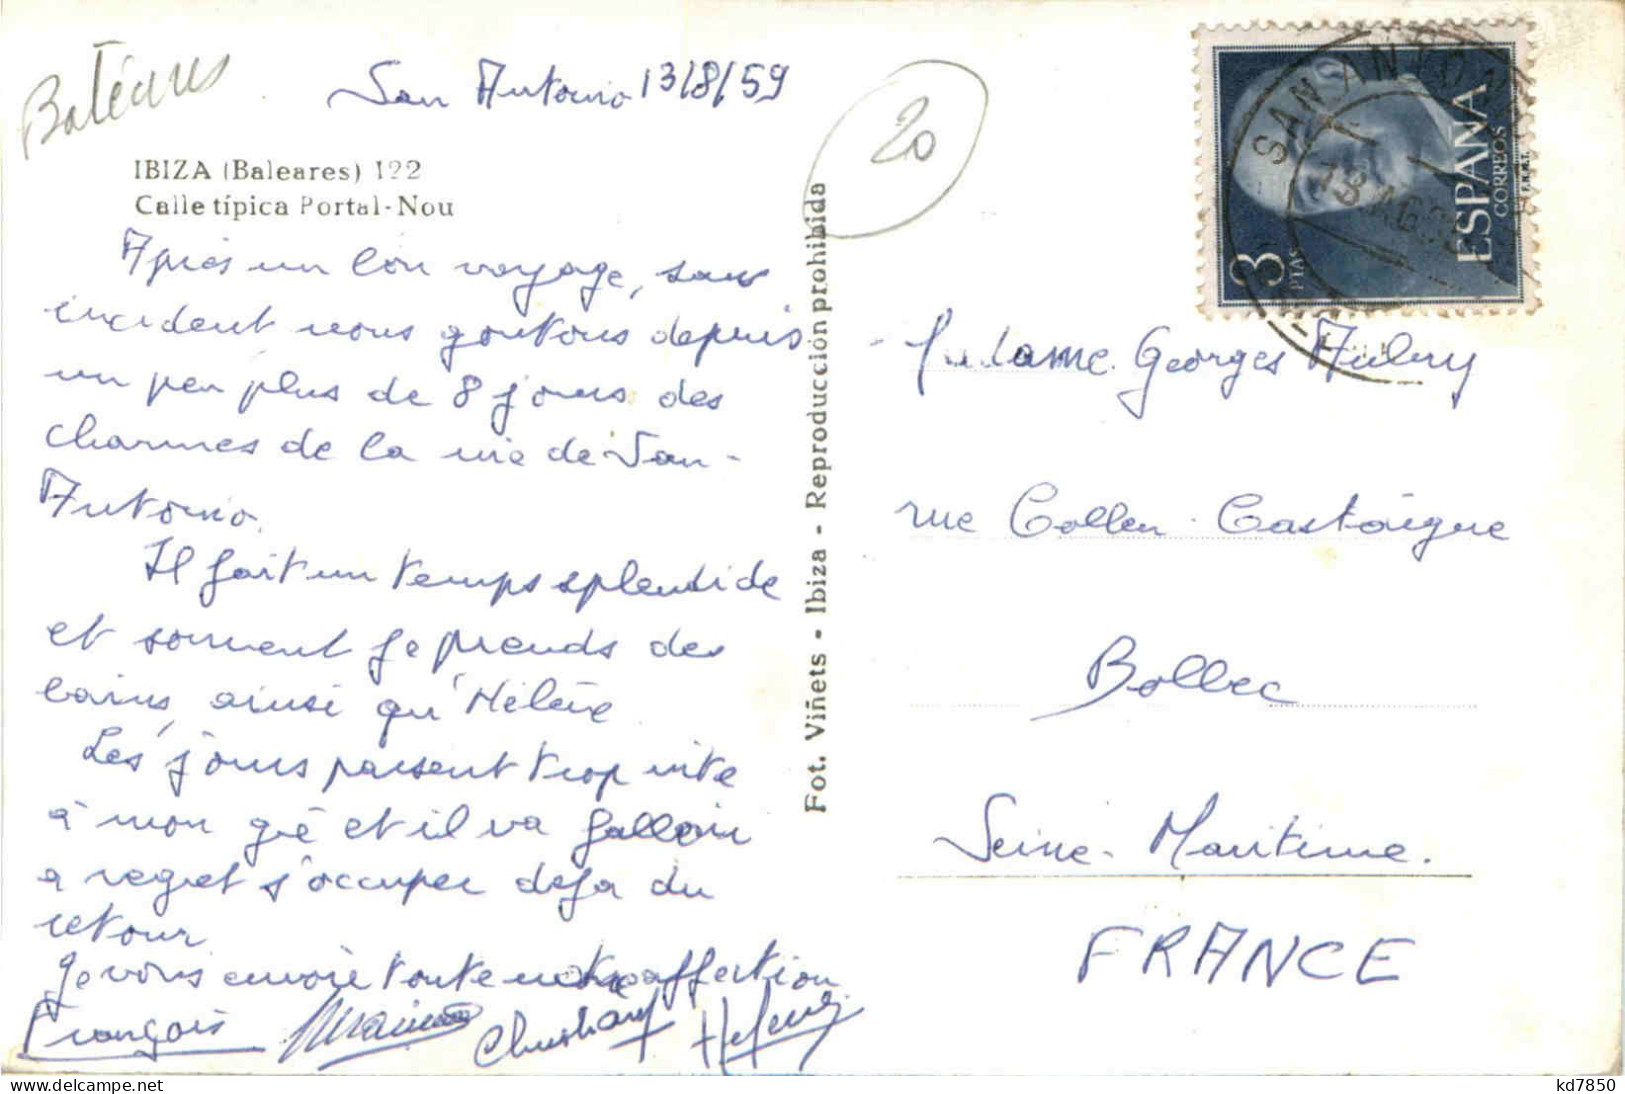 Baléares
San Antonio 13/8/59
20
IBIZA (Baleares) 122
Calle típica Portal-Nou
Après un bon voyage, sans
incident nous goutons depuis
un peu plus de 8 jours des
charmes de la vie de San-
Antonio.
Il fait un temps splendide
et souvent je prends des
bains, ainsi qu'Hélène
Les jours passent trop vite
à mon gré et il va falloir
a regret s'occuper déja du
retour
Je vous envoie toute notre affection
François Christian Hélène
Fot. Viñets - Ibiza - Reproducción prohibida
SAN ANTONIO
ESPAÑA
CORREOS
F.N.M.T.
3
PTAS
Madame Georges Aubry
rue Collen Castaigne
Bolbec
Seine-Maritime.
FRANCE
kd7850
delcampe.net